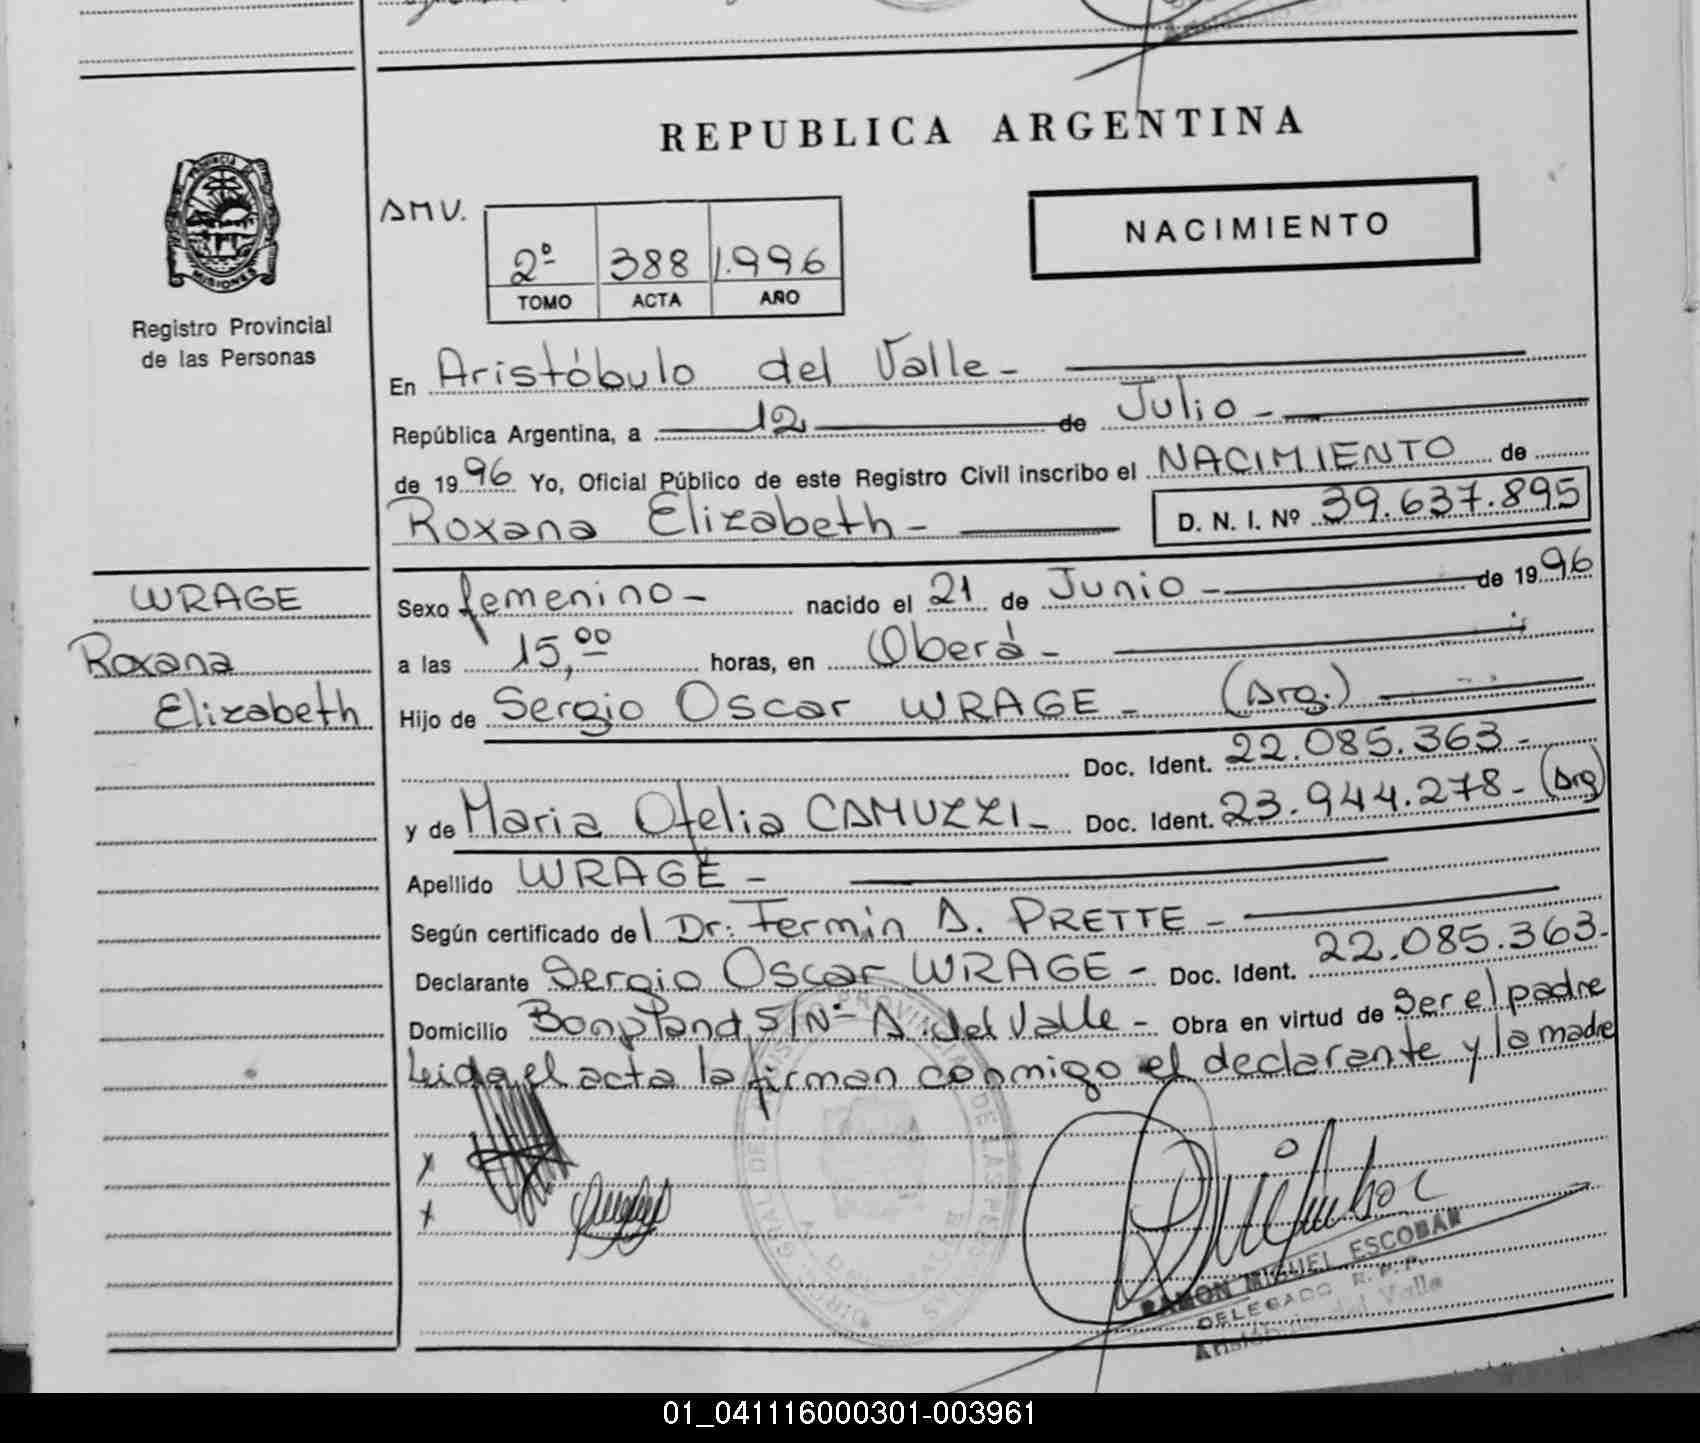 REPUBLICA ARGENTINA
PROVINCIA DE
MISIONES
Registro Provincial
de las Personas
AMV.
2º 388 1.996
TOMO ACTA AÑO
NACIMIENTO
En Aristóbulo del Valle -
República Argentina, a 12 de Julio -
de 1996 Yo, Oficial Público de este Registro Civil inscribo el NACIMIENTO de
Roxana Elizabeth - D. N. I. Nº 39.637.895
WRAGE
Roxana
Elizabeth
Sexo femenino - nacido el 21 de Junio - de 1996
a las 15,00 horas, en Oberá -
Hijo de Sergio Oscar WRAGE - (Arg.)
Doc. Ident. 22.085.363 -
y de Maria Ofelia CAMUZZI - Doc. Ident. 23.944.278 - (Arg)
Apellido WRAGE -
Según certificado del Dr. Fermin A. PRETTE -
Declarante Sergio Oscar WRAGE - Doc. Ident. 22.085.363 -
Domicilio Bonpland S/Nº A. del Valle - Obra en virtud de Ser el padre
Leida el acta la firman conmigo el declarante y la madre
x
x
RAMON MIGUEL ESCOBAR
DELEGADO R. P. P.
Aristóbulo del Valle
01_041116000301-003961